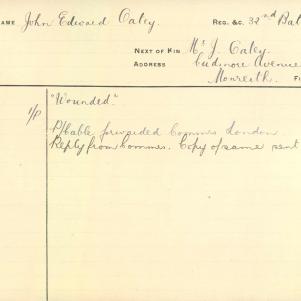 NAME John Edward Caley REG. &C. 32nd Bat
NEXT OF KIN Mr J. Caley.
ADDRESS Cudmore Avenue
Monreith. F
1/P "Wounded."
P/Cable forwarded Commrs London
Reply from Commrs. Copy of same sent